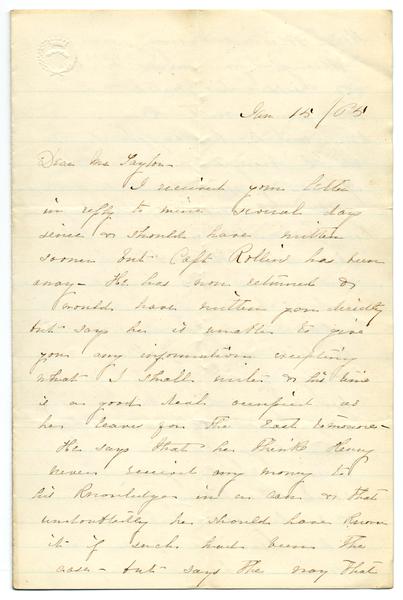 Jan 15 / 65
Dear Mr Taylor
I received your letter
in reply to mine several days
since & should have written
sooner but Capt Rollins has been
away - He has now returned &
would have written you directly
but says he is unable to give
you any information excepting
what I shall write & his time
is a good deal occupied as
he leaves for the East tomorrow -
He says that he thinks Henry
never received any money to
his Knowledge in a case & that
undoubtedly he should have Known
it if such had been the
case - but says the way that